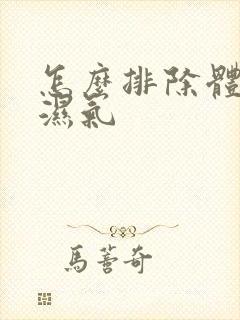 怎麼排除體
濕氣
馬蓍奇